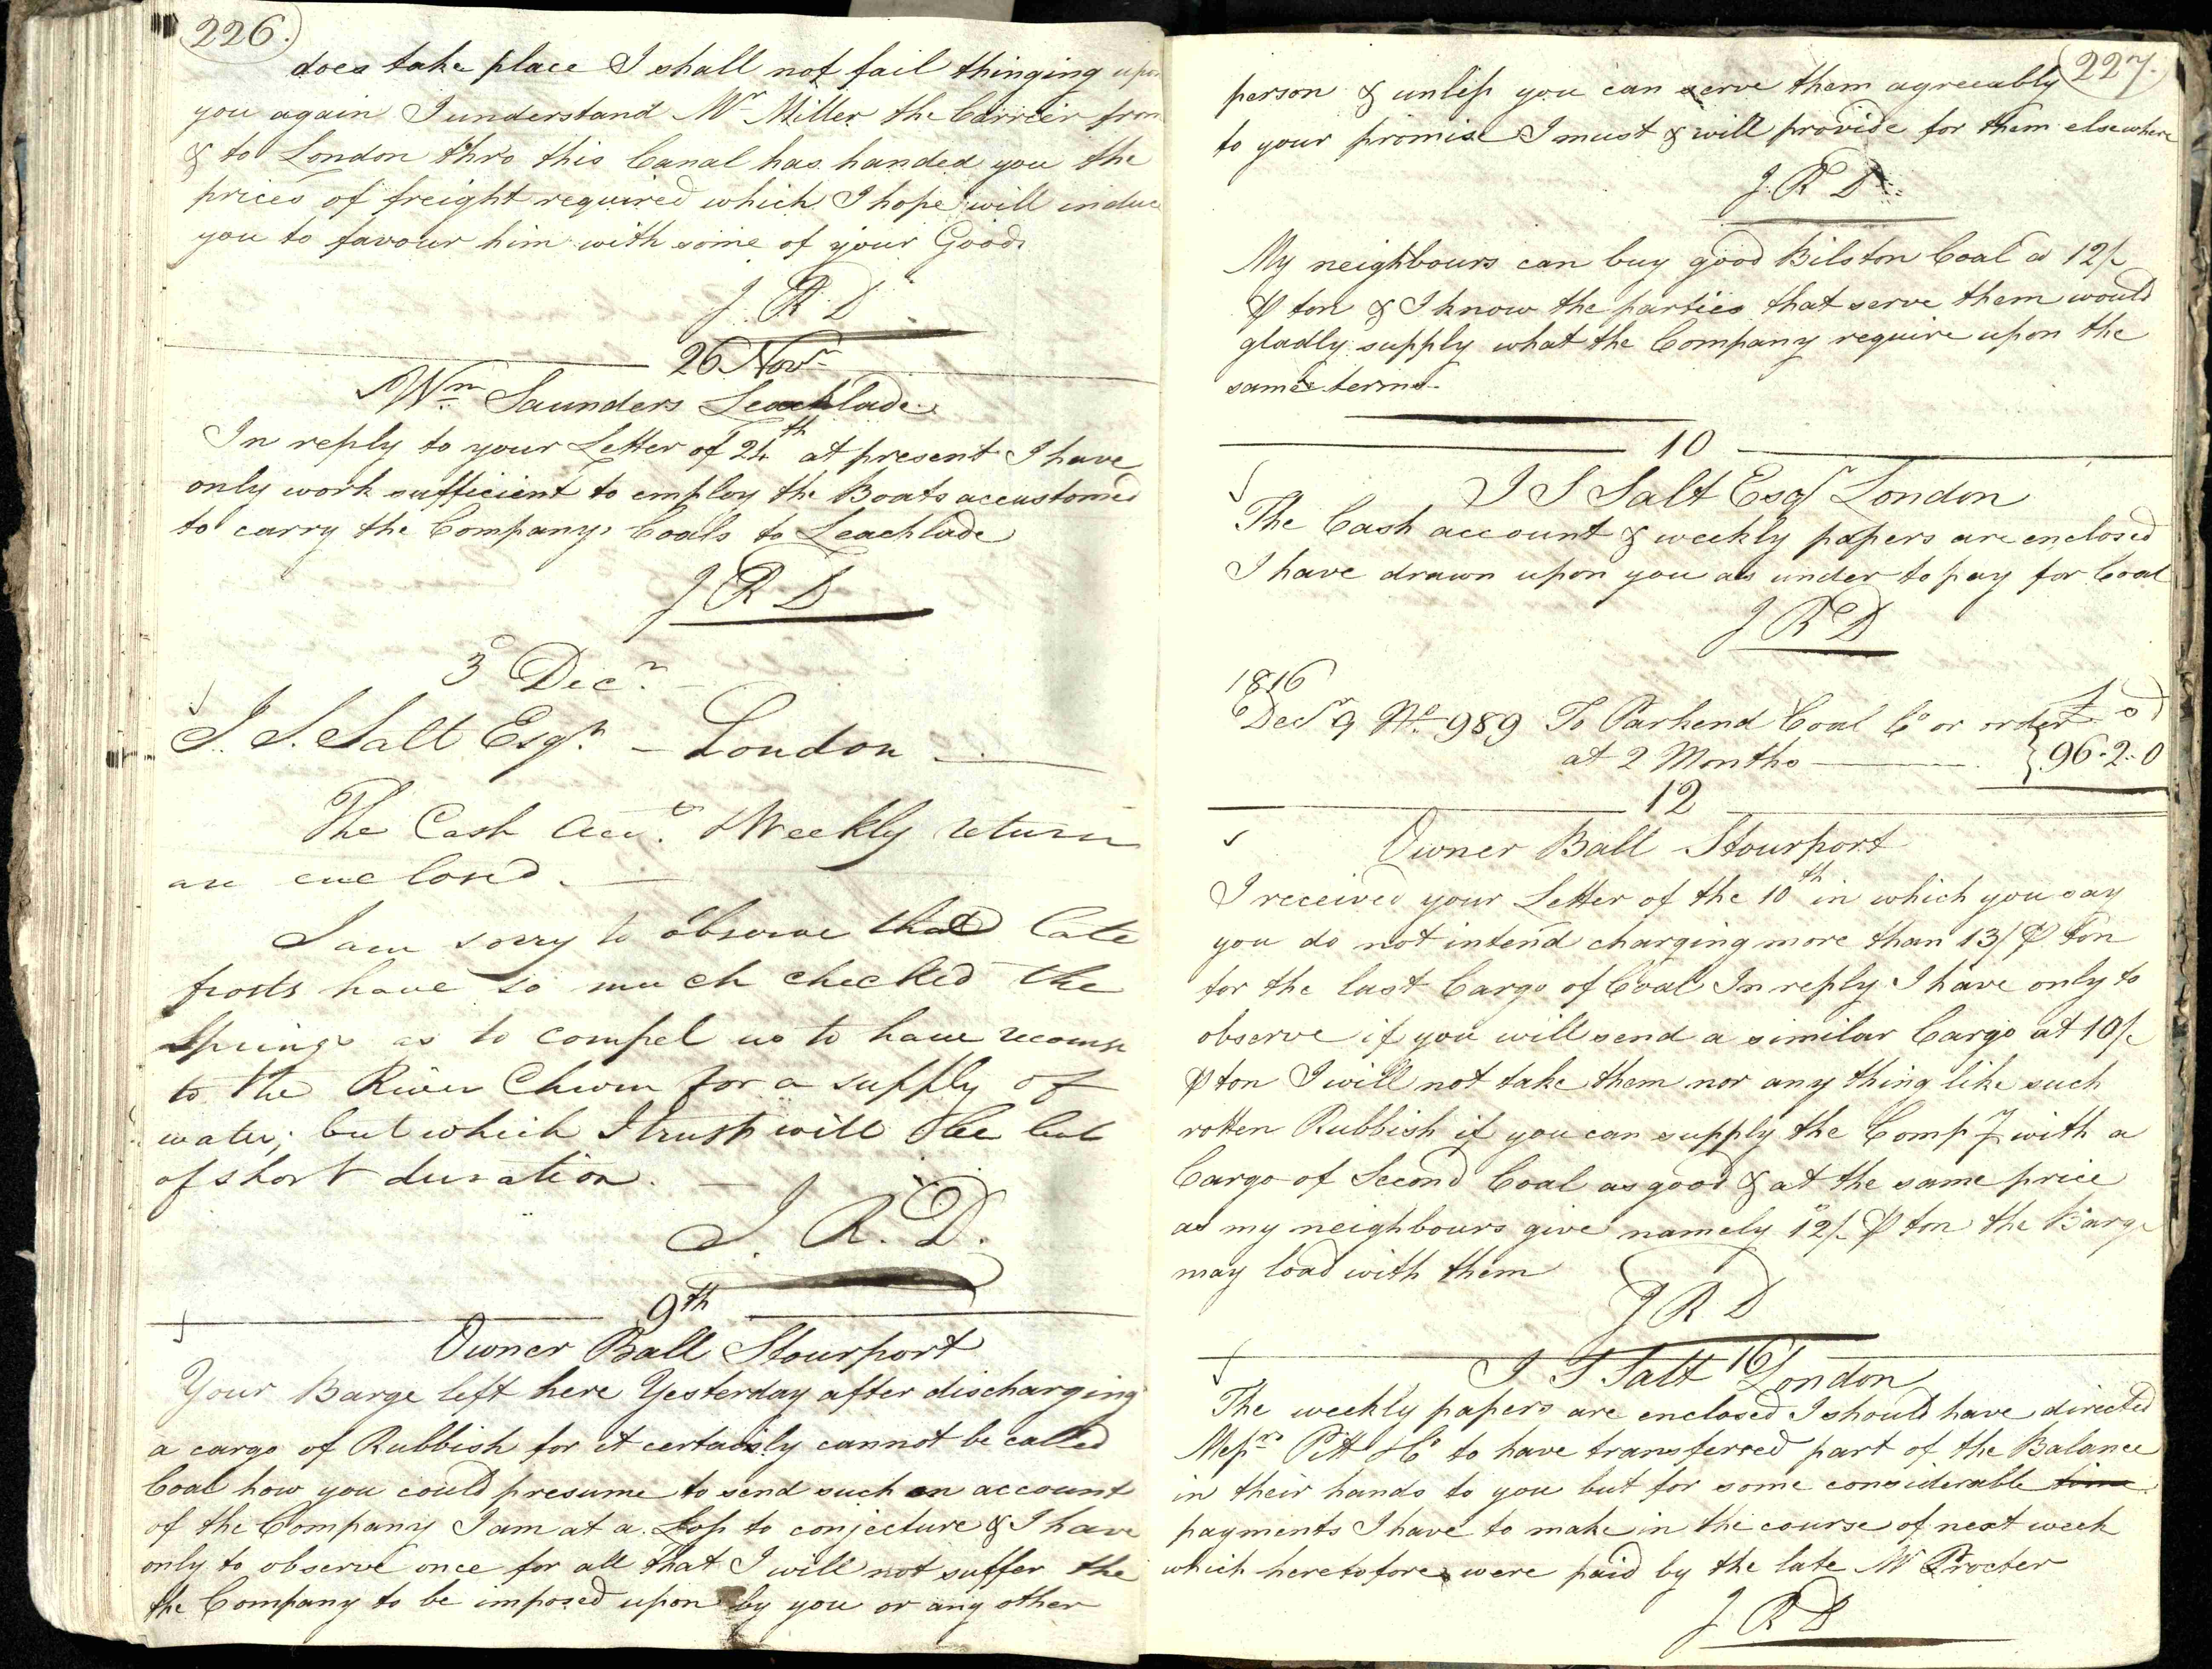 226.
does take place I shall not fail thinging upon
you again I understand Mr Miller the Carrier from
& to London thro this Canal has handed you the
prices of freight required which I hope will induce
you to favour him with some of your Goods
J. R. D
26 Novr
Wm Saunders Leachlade
In reply to your Letter of 24th at present I have
only work sufficient to employ the Boats accustomed
to carry the Companys Coals to Leachlade
J R D
3 Decr
J. S. Salt Esqr. - London
The Cash Acct. & Weekly return
are enclosed.
I am sorry to observe that late
frosts have so much checked the
Springs as to compel us to have recourse
to the River Churn for a supply of
water; but which I trust will be but
of short duration.
J. R. D.
9th
Owner Ball Stourport
Your Barge left here Yesterday after discharging
a cargo of Rubbish for it certainly cannot be called
Coal how you could presume to send such on account
of the Company I am at a Loss to conjecture & I have
only to observe once for all that I will not suffer the
the Company to be imposed upon by you or any other
227.
person & unless you can serve them agreeably
to your promise I must & will provide for them elsewhere
J R D
My neighbours can buy good Bilston Coal a 12/-
⅌ ton & I know the parties that serve them would
gladly supply what the Company require upon the
same terms.
10
J S Salt Esqr London
The Cash account & weekly papers are enclosed
I have drawn upon you as under to pay for Coal
J R D
1816
Decr 9 No. 989 To Parkend Coal Co or order £ s d
at 2 Months } 96-2-0
12
Owner Ball Stourport
I received your Letter of the 10th in which you say
you do not intend charging more than 13/ ⅌ ton
for the last Cargo of Coal In reply I have only to
observe if you will send a similar Cargo at 10/-
⅌ ton I will not take them nor any thing like such
rotten Rubbish if you can supply the Compy with a
Cargo of Second Coal as good & at the same price
as my neighbours give namely 12/- ⅌ ton the Barge
may load with them
J R D
16
J S Salt London
The weekly papers are enclosed I should have directed
Messrs Pitt & Co to have transferred part of the Balance
in their hands to you but for some considerable time
payments I have to make in the course of next week
which heretofore were paid by the late Mr Procter
J R D